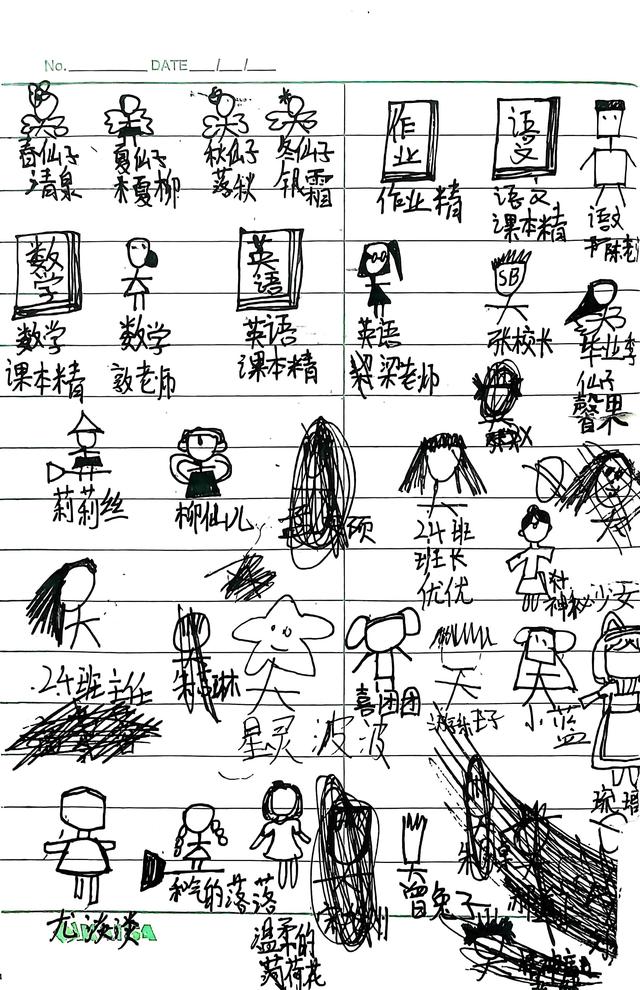 No. DATE / /
春仙子
清泉
夏仙子
木夏柳
秋仙子
落秋
冬仙子
银霜
作业
作业精
语文
语文
课本精
语文
数学
数学
课本精
数学
敦老师
英语
英语
课本精
英语
梁老师
SB
张校长
毕业季
仙子
馨果
莉莉丝
柳仙儿
24班
班长
优优
神秘少女
24班主任
星灵波波
喜团团
游乐王子
小蓝
琉璃
尤淡淡
和气的落落
温柔的
荷花
曾兔子